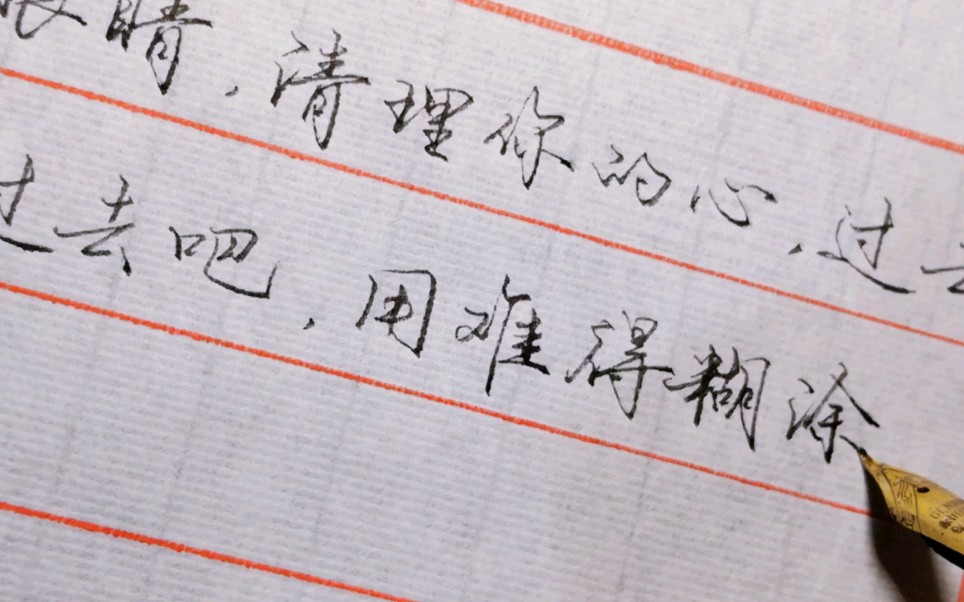 眼睛，清理你的心，过去
过去吧，用难得糊涂